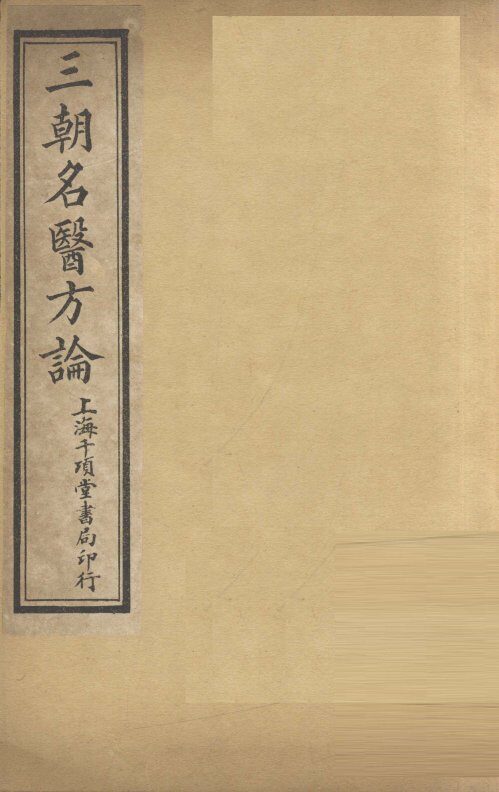 三朝名醫方論
上海千項堂書局印行